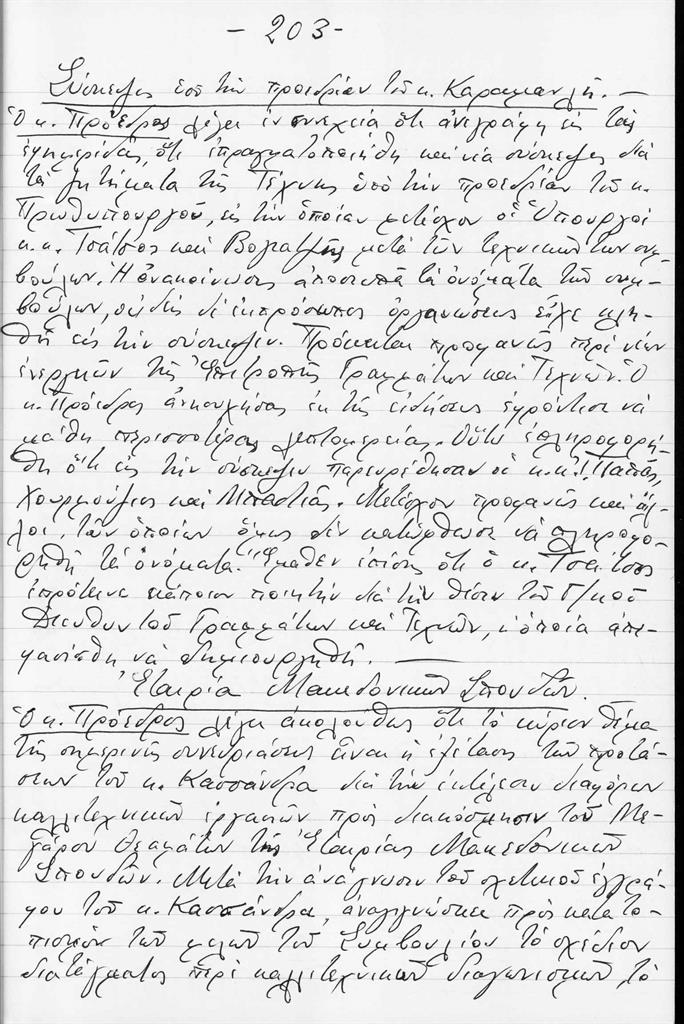 - 203 -
Σύσκεψις ὑπὸ τὴν προεδρίαν τοῦ κ. Καραμανλῆ. —
Ὁ κ. Πρόεδρος λέγει ἐν συνεχείᾳ ὅτι ἀνεγράφη εἰς τὰς
ἐφημερίδας, ὅτι ἐπραγματοποιήθη καὶ νέα σύσκεψις διὰ
τὰ ζητήματα τῆς Τέχνης ὑπὸ τὴν προεδρίαν τοῦ κ.
Πρωθυπουργοῦ, εἰς τὴν ὁποίαν μετέσχον οἱ Ὑπουργοὶ
κ.κ. Τσάτσος καὶ Βογιατζῆς μετὰ τῶν τεχνικῶν των συμ-
βούλων. Ἡ ἀνακοίνωσις ἀποσιωπᾶ τὰ ὀνόματα τῶν συμ-
βούλων, οὐδεὶς δὲ ἐκπρόσωπος ὀργανώσεως εἶχε κλη-
θῆ εἰς τὴν σύσκεψιν. Πρόκειται προφανῶς περὶ νέων
ἐνεργειῶν τῆς Ἐπιτροπῆς Γραμμάτων καὶ Τεχνῶν. Ὁ
κ. Πρόεδρος ἀνησυχήσας ἐκ τῆς εἰδήσεως ἐφρόντισε νὰ
μάθη περισσοτέρας λεπτομερείας. Οὕτω ἐπληροφορή-
θη ὅτι εἰς τὴν σύσκεψιν παρευρέθησαν οἱ κ.κ. Παππᾶς,
Χουρμούζιος καὶ Μπαστιᾶς. Μετέσχον προφανῶς καὶ ἄλ-
λοι, τῶν ὁποίων ὅμως δὲν κατώρθωσε νὰ πληροφο-
ρηθῆ τὰ ὀνόματα. Ἔμαθεν ἐπίσης ὅτι ὁ κ. Τσάτσος
ἐπρότεινε κάποιον ποιητὴν διὰ τὴν θέσιν τοῦ Γ/κοῦ
Διευθυντοῦ Γραμμάτων καὶ Τεχνῶν, ἡ ὁποία ἀπε-
φασίσθη νὰ δημιουργηθῆ. —
Ἑταιρία Μακεδονικῶν Σπουδῶν.
Ὁ κ. Πρόεδρος λέγει ἀκολούθως ὅτι τὸ κύριον θέμα
τῆς σημερινῆς συνεδριάσεως εἶναι ἡ ἐξέτασις τῶν προτά-
σεων τοῦ κ. Κασσάνδρα διὰ τὴν ἐκτέλεσιν διαφόρων
καλλιτεχνικῶν ἐργασιῶν πρὸς διακόσμησιν τοῦ Με-
γάρου Θεαμάτων τῆς Ἑταιρίας Μακεδονικῶν
Σπουδῶν. Μετὰ τὴν ἀνάγνωσιν τοῦ σχετικοῦ ἐγγρά-
φου τοῦ κ. Κασσάνδρα, ἀναγιγνώσκει πρὸς κατατο-
πισμὸν τῶν μελῶν τοῦ Συμβουλίου τὸ σχέδιον
διατάγματος περὶ καλλιτεχνικῶν διαγωνισμῶν, τὸ